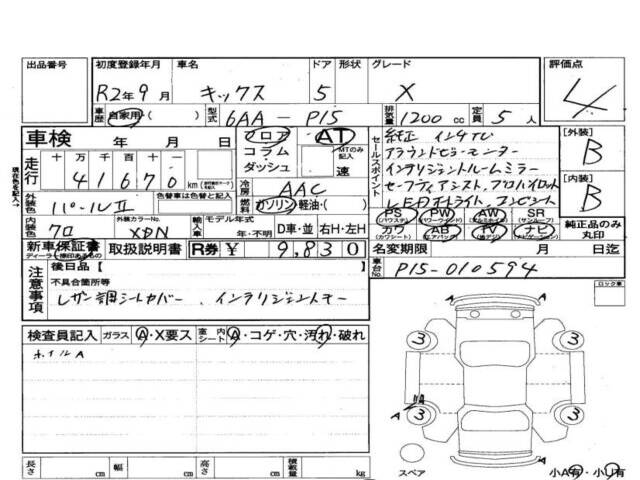 出品番号 初度登録年月 車名 ドア 形状 グレード 評価点
R2年9月 キックス 5 X 4
車歴 自家用( ) 型式 6AA-P15 排気量 1200cc 定員 5人
車検 年 月 日 フロア AT セールスポイント 純正 インタTV [外装]
コラム MTのみ記入 アラウンドビューモニター B
走行 十 万 千 百 十 ダッシュ 速 インテリジェントルームミラー
4 1 6 7 0 km 冷房 AAC セーフティアシスト、プロパイロット [内装]
外装色 パールⅡ 色替車は色替前色( ) 燃料 ガソリン・軽油・( ) LEDオートライト、 B
PS PW AW SR
(パワステ) (パワーウインド) (アルミホイール) (サンルーフ)
内装色 クロ 外装カラーNo. XDN 輸入車 モデル年式 年・不明 D車・並 右H・左H カワ AB TV ナビ 純正品のみ丸印
(カワシート) (エアバッグ) (テレビ) (ナビゲーション)
新車保証書 取扱説明書 R券 ¥ 9,830 名変期限 月 日迄
ディーラー様印あるもの
現在色を記入→
注意事項 後日品【 】 車台No. P15-010594
不具合箇所等 ロック車
レザー調シートカバー、インテリジェントキー
検査員記入 ガラス A・X要ス 室内シート A・コゲ・穴・汚れ・破れ
ホイルA
A
3 3
A
3 3
A
スペア 小A有・小U有
長さ cm 幅 cm 高さ cm 積載量 kg